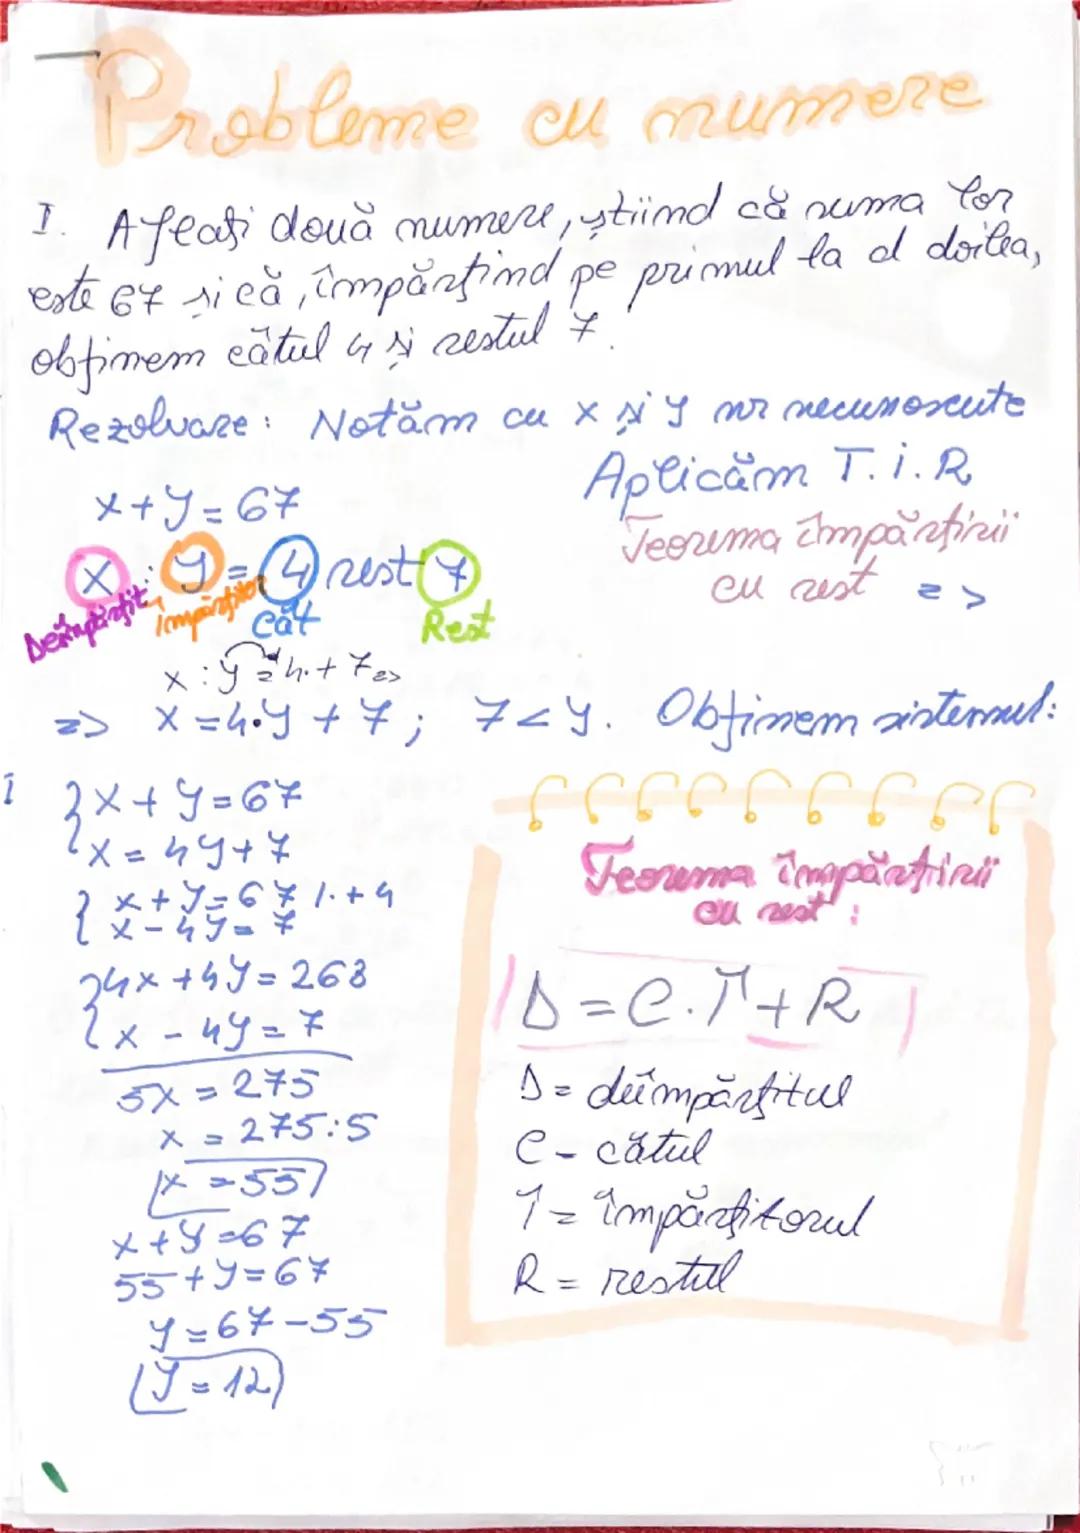 Probleme cu numere
I. Aflați două numere, știind că suma lor
este 67 și că, împărțind pe primul la al doilea,
obținem câtul 4 și restul 7.
Rezolvare: Notăm cu x și y nr necunoscute
Aplicăm T.Î.R
x+y=67
Teorema împărțirii
cu rest =>
x : y = 4 rest 7
Deîmpărțit Împărțitor Cât Rest
x : y = 4 + 7 =>
=> x = 4·y + 7; 7<y. Obținem sistemul:
I { x+y=67
{ x = 4y+7
{ x+y=67 |·+4
{ x-4y=7
{ 4x+4y=268
{ x-4y=7
5x=275
x=275:5
x=55
x+y=67
55+y=67
y=67-55
y=12
Teorema împărțirii
cu rest:
D=C·Î+R
D= deîmpărțitul
C- câtul
Î= împărțitorul
R= restul